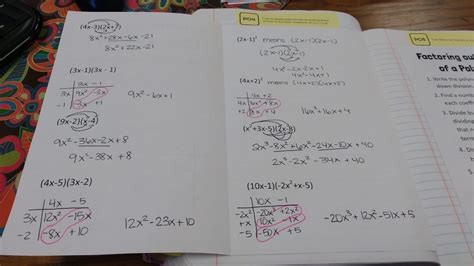 (4x-3)(2x+7)
8x²+28x-6x-21
8x²+22x-21
(3x-1)(3x - 1)
3x - 1
3x 9x² -3x
-1 -3x +1
9x²-6x+1
(9x-2)(x-4)
9x²-36x-2x+8
9x²-38x+8
(4x-5)(3x-2)
4x - 5
3x 12x² -15x
-2 -8x +10
12x²-23x+10
(2x-1)² means (2x-1)(2x-1)
(2x-1)(2x-1)
4x²-2x-2x+1
4x²-4x+1
(4x+2)² means (4x+2)(4x+2)
4x + 2
4x 16x² +8x
+2 +8x +4
16x²+16x+4
(x²+3x-5)(2x-8)
2x³-8x²+6x²-24x-10x+40
2x³-2x²-34x+40
(10x-1)(-2x²+x-5)
10x - 1
-2x² -20x³ +2x²
+x +10x² -1x
-5 -50x +5
-20x³+12x²-51x+5
Factoring
of a Pol
1. Write the
2. Find a
each
3. Divide
4.